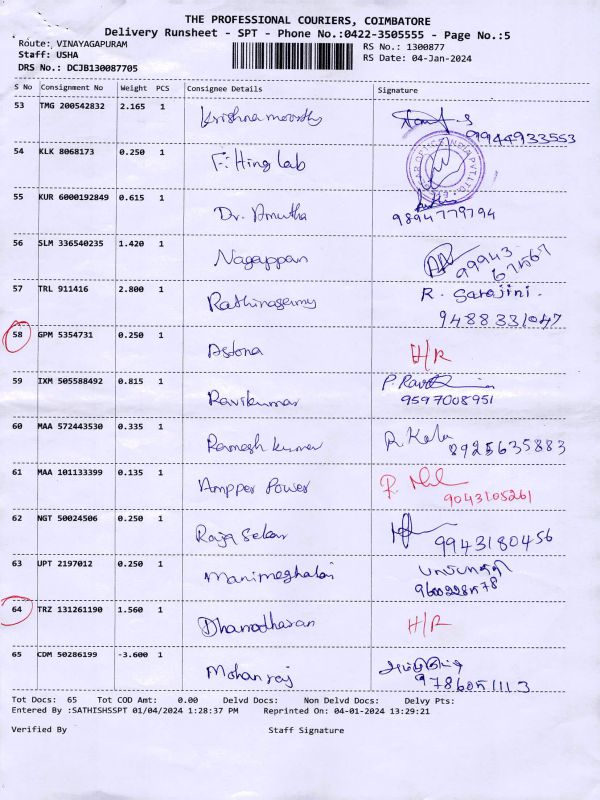 THE PROFESSIONAL COURIERS, COIMBATORE
Delivery Runsheet - SPT - Phone No.:0422-3505555 - Page No.:5
Route: VINAYAGAPURAM
RS No.: 1300877
Staff: USHA
RS Date: 04-Jan-2024
DRS No.: DCJB130087705
S No Consignment No Weight PCS Consignee Details Signature
53 TMG 200542832 2.165 1 Krishna moorthy
99944933553
54 KLK 8068173 0.250 1 Fitting lab
55 KUR 6000192849 0.615 1 Dr. Amutha
9894779794
56 SLM 336540235 1.420 1 Nagappan 99943
57 TRL 911416 2.800 1 Rathinasamy R. Sarajini.
9488331047
58 GPM 5354731 0.250 1 Astona H/R
59 IXM 505588492 0.815 1 Ravikumar P. Ravi
9597008951
60 MAA 572443530 0.335 1 Ramesh kumar R. Kala 8925635883
61 MAA 101133399 0.135 1 Ampper Power
9043105261
62 NGT 50024506 0.250 1 Raja Sekar 9943180456
63 UPT 2197012 0.250 1 Manimeghalai
64 TRZ 131261190 1.560 1 Dhamodharan H/R
65 CDM 50286199 -3.600 1 Mohan raj
Tot Docs: 65 Tot COD Amt: 0.00 Delvd Docs: Non Delvd Docs: Delvy Pts:
Entered By :SATHISHSSPT 01/04/2024 1:28:37 PM Reprinted On: 04-01-2024 13:29:21
Verified By Staff Signature